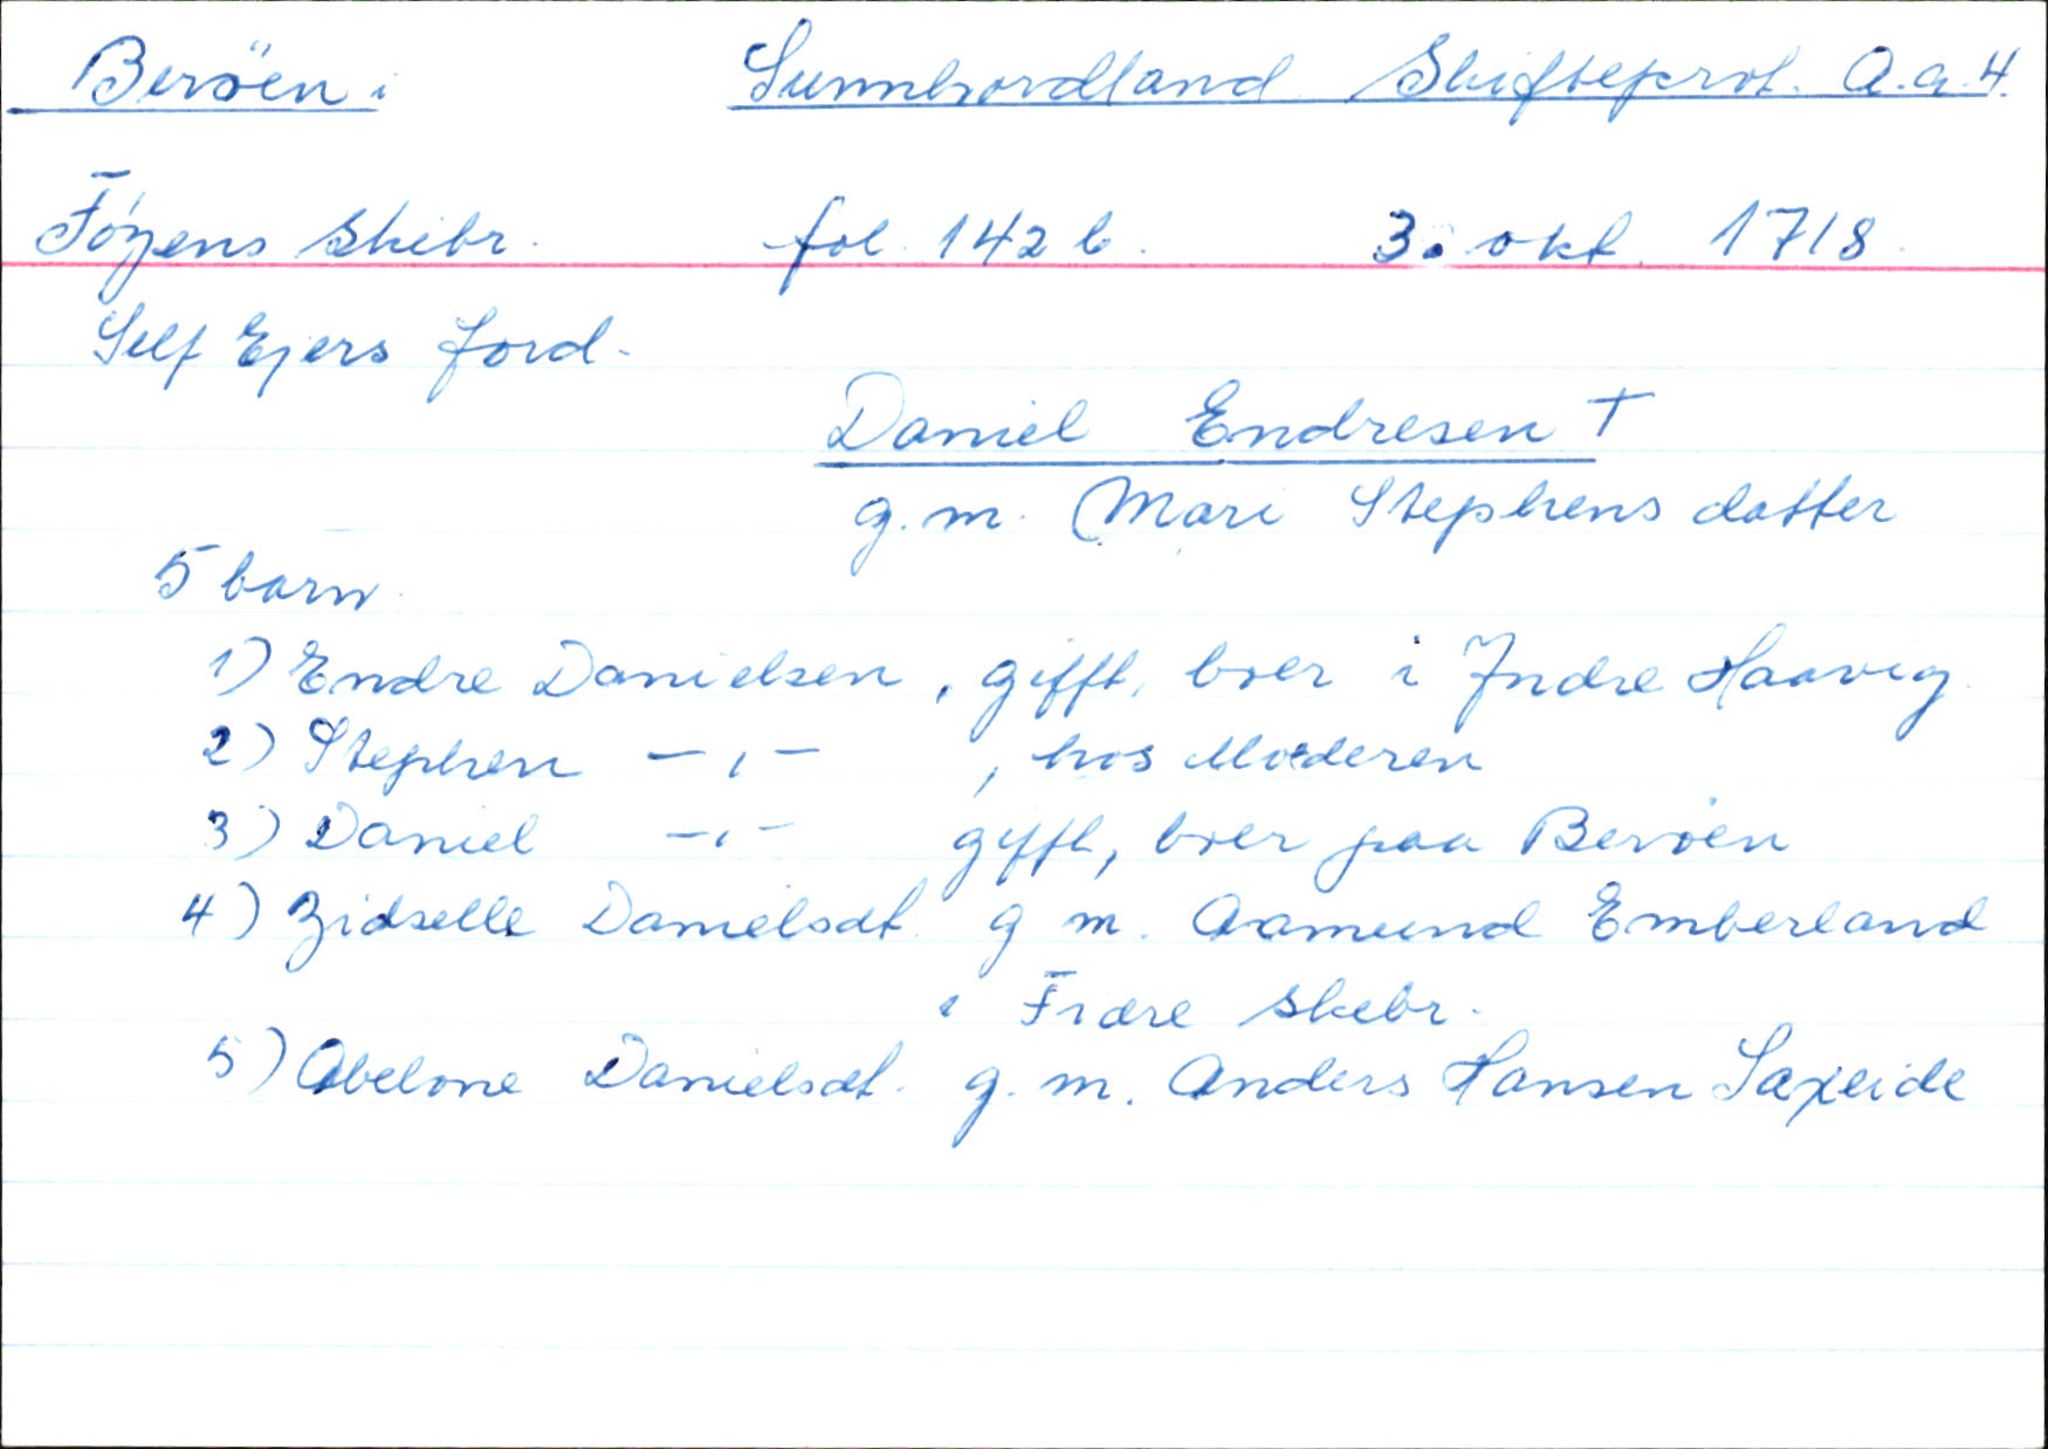 Beröen i Sunnhordland Skifteprot. A.a.4.
Föyens Skibr. fol. 142 b. 3. okt. 1718.
Self Ejers Jord.
Daniel Endresen †
g.m. Mari Stephens datter
5 barn.
1) Endre Danielsen, gifft, boer i Indre Haavig.
2) Stephen -,- , hos Moderen
3) Daniel -,- gifft, boer paa Beröen
4) Zidselle Danielsdt. g m. Aamund Emberland
i Fiære Skibr.
5) Abelone Danielsdt. g. m. Anders Hansen Sæxeide